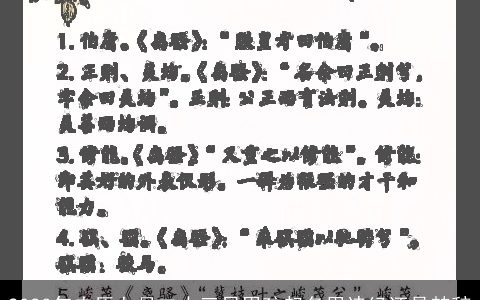 1. 伯庸。《离骚》："朕皇考曰伯庸"。
2. 正则、灵均。《离骚》："名余曰正则兮，
字余曰灵均"。正则：公正而有法则。灵均：
灵善而均调。
3. 修能。《离骚》"又重之以修能"。修能：
即美好的外表仪形。一释为很强的才干和
能力。
4. 骐、骥。《离骚》："乘骐骥以驰骋兮"。
骐骥：骏马。
5. 峻茂《离骚》"冀枝叶之峻茂兮"峻茂